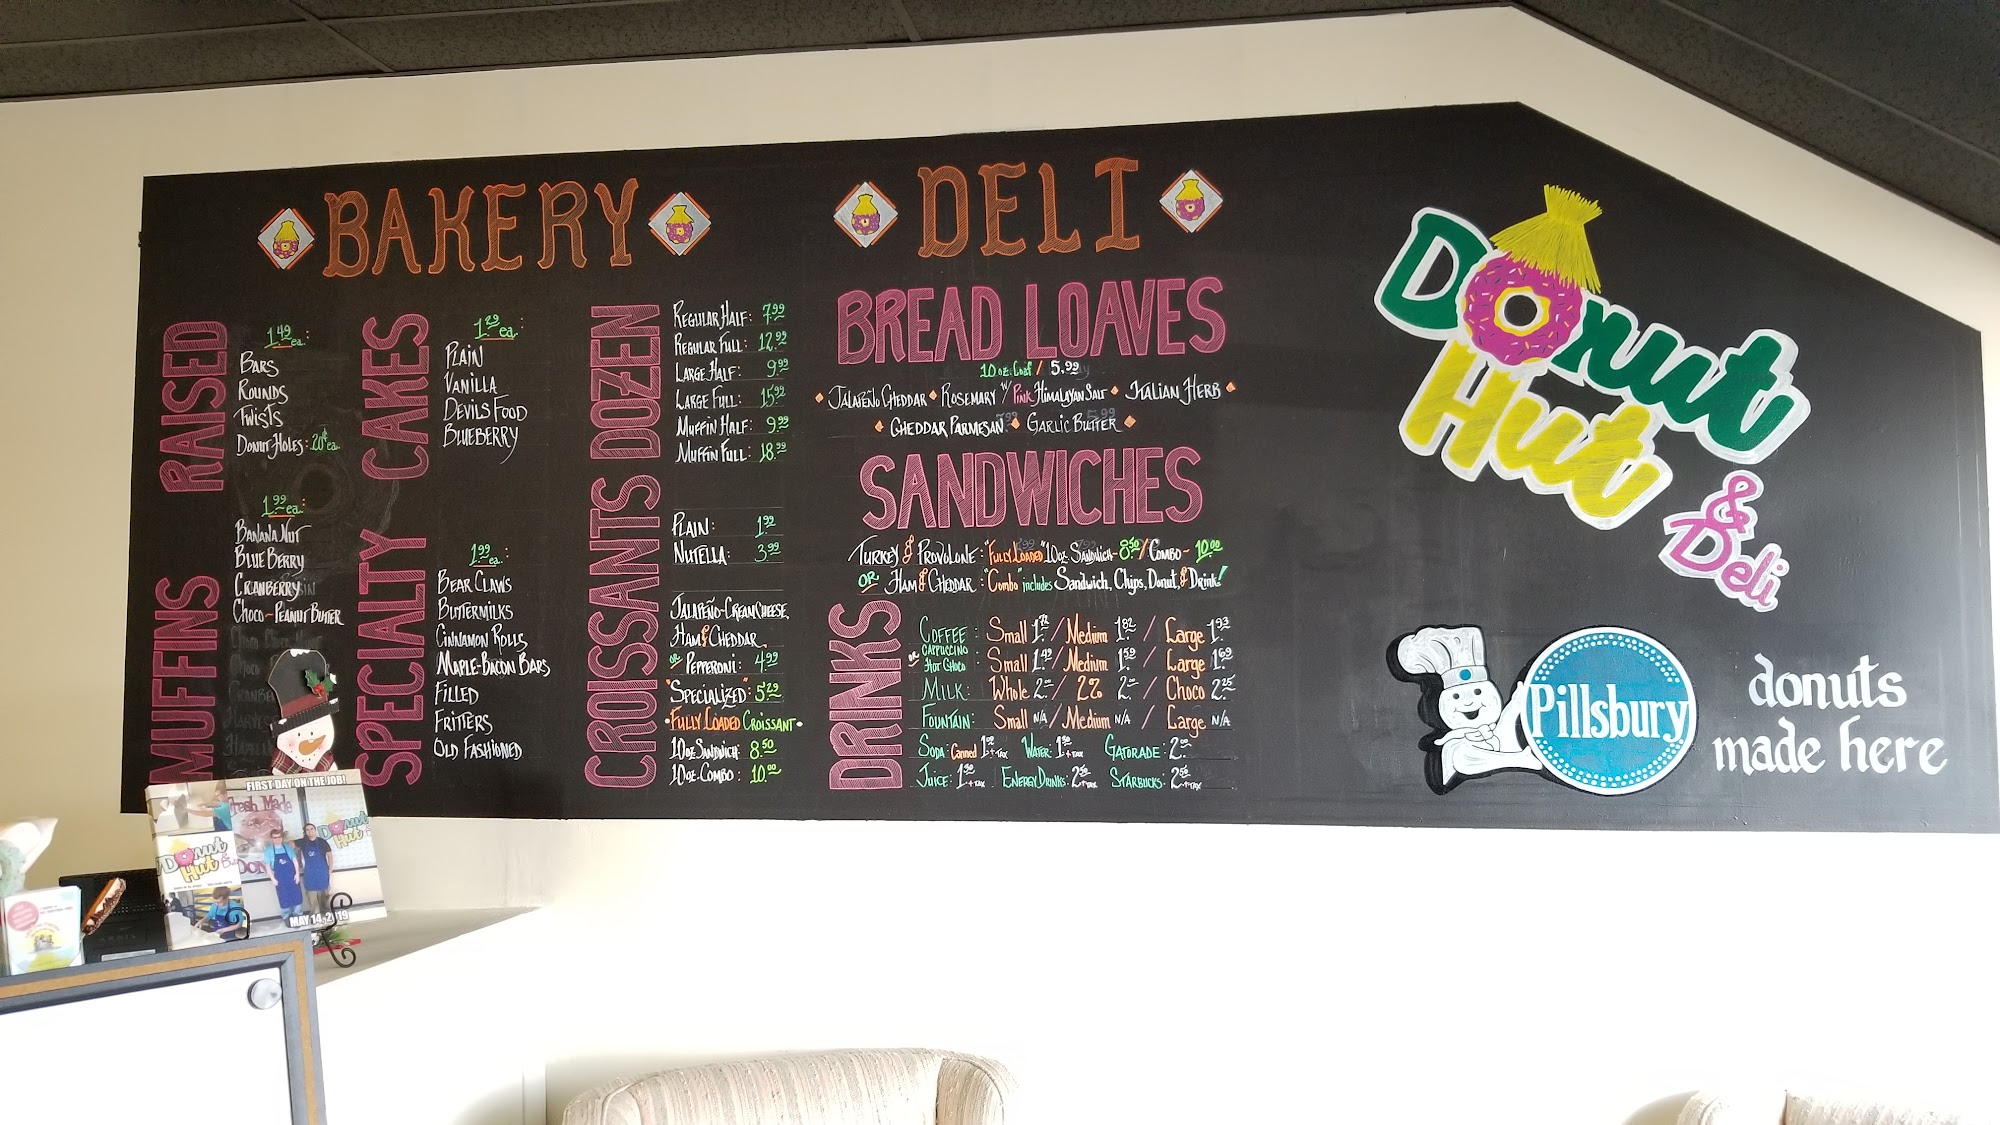 BAKERY
RAISED
1.49 ea.:
BARS
ROUNDS
TWISTS
DONUT HOLES: .20¢ ea.
MUFFINS
1.99 ea.:
BANANA NUT
BLUE BERRY
CRANBERRY
CHOCO-PEANUT BUTTER
CAKES
1.29 ea.:
PLAIN
VANILLA
DEVILS FOOD
BLUEBERRY
SPECIALTY
1.99 ea.:
BEAR CLAWS
BUTTERMILKS
CINNAMON ROLLS
MAPLE-BACON BARS
FILLED
FRITTERS
OLD FASHIONED
DOZEN
REGULAR HALF: 7.99
REGULAR FULL: 12.99
LARGE HALF: 9.99
LARGE FULL: 15.99
MUFFIN HALF: 9.99
MUFFIN FULL: 18.99
CROISSANTS
PLAIN: 1.99
NUTELLA: 3.99
JALAPEÑO-CREAM CHEESE,
HAM & CHEDDAR,
OR PEPPERONI: 4.99
"SPECIALIZED": 5.29
•FULLY LOADED CROISSANT•
10oz. SANDWICH: 8.50
10oz. COMBO: 10.00
DELI
BREAD LOAVES
10 oz. Loaf / 5.99
JALAPEÑO CHEDDAR ROSEMARY W/ PINK HIMALAYAN SALT ITALIAN HERB
CHEDDAR PARMESAN GARLIC BUTTER
SANDWICHES
TURKEY & PROVOLONE: "FULLY LOADED" 10oz. SANDWICH- 8.50 / COMBO- 10.00
OR HAM & CHEDDAR: "Combo" includes Sandwich, Chips, Donut, & Drink!
DRINKS
COFFEE: Small / Medium 1.82 / Large 1.93
OR CAPPUCCINO HOT CHOCO: Small 1.49 / Medium 1.59 / Large 1.69
MILK: Whole 2. / 2% 2. / Choco 2.25
FOUNTAIN: Small N/A / Medium N/A / Large N/A
SODA: Canned + TAX WATER: + TAX GATORADE: 2.
JUICE: + TAX ENERGY DRINKS: + TAX STARBUCKS: + TAX
Donut
Hut
& Deli
Pillsbury
donuts
made here
FIRST DAY ON THE JOB!
Fresh Made
Donut
Hut
MAY 14, 2019